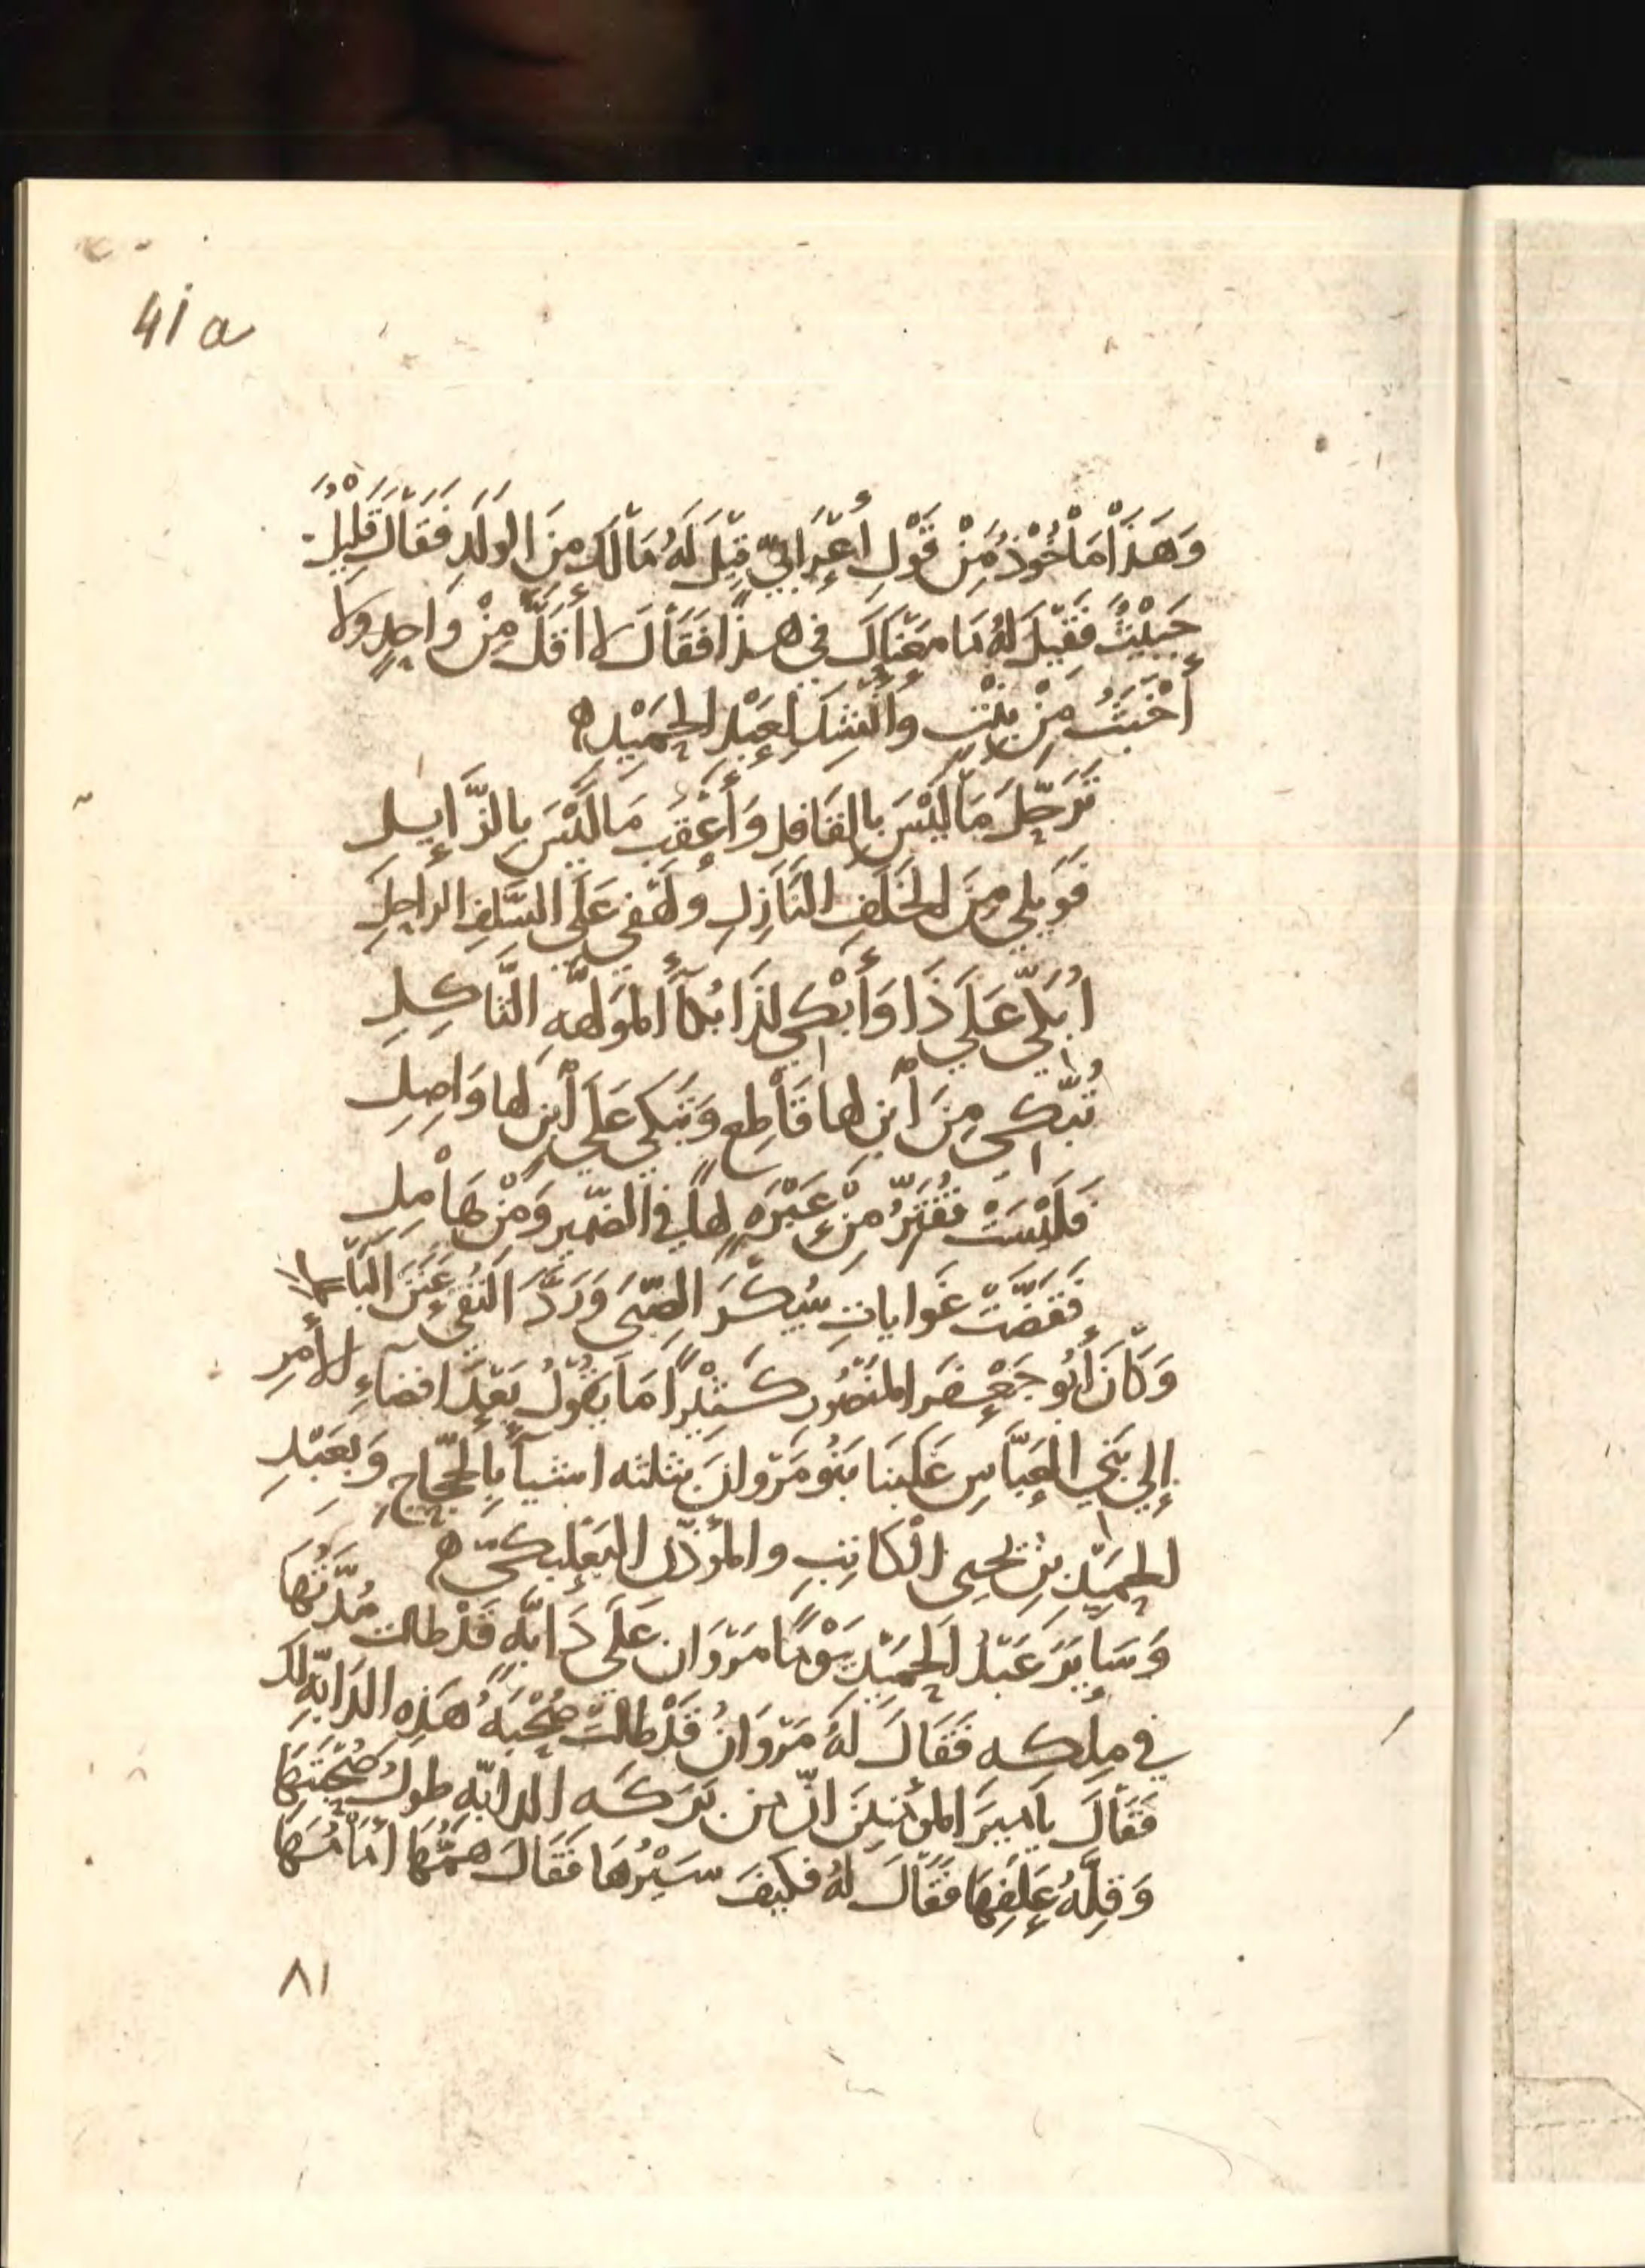 41a
وَهَذَا مَأْخُوْذٌ مِنْ قَوْلِ أَعْرَابِيٍّ قِيْلَ لَهُ مَا لَكَ مِنَ الوَلَدِ فَقَالَ قَلِيْلٌ
خَبِيْثٌ فَقِيْلَ لَهُ مَا مَعْنَاكَ في هذَا فَقَالَ لا أَقَلَّ مِنْ وَاحِدٍ ولا
أَخْبَثُ مِنْ بِنْتٍ وأُنْشِدَ لِعَبْدِ الحَمِيْدِ ه
تَرَحَّلَ مَا لَيْسَ بِالقَافِلِ وَأَعْقَبَ مَا لَيْسَ بِالزَّايِلِ
فَوَيلي مِنَ الخَلَفِ النَّازِلِ ولَهْفي عَلَي السَّلَفِ الرَاحِلِ
أُبَكّي عَلَي ذَا وَأَبْكي لِذَا بُكَآءَ المُوَلَّهَةِ الثَّاكِلِ
تُبَكّي مِنَ ابْنٍ لها قَاطِعٍ وَتَبكي عَلَي ابْنٍ لها وَاصِلِ
فَلَيْسَتْ تُفَتِّرُ مِنْ عَبْرَةٍ لها في الضَّمِيرِ وَمِنْ هَامِلِ
تَقَضَّتْ غَواياتِ سُكْرِ الصِّبَى وَرَدَّ التُّقَى عَنَنَ البَاطِلِ
وَكَانَ أَبُو جَعْفَر المَنْصُور كَثِيْرًا مَا يَقُوْلُ بَعْدَ افضَاءِ الأَمْرِ
إِلي بَنِي العَبَّاسِ غَلَبَنَا بَنُو مَرْوانَ بثلثه اشيآءَ بِالحَجَّاجِ وَبِعَبْدِ
الحَمِيْدِ بْنِ يحيى الْكَاتِبِ والمُؤذّنِ البَعْلَبكيّ ه
وَسَايَرَ عَبْدُ الحَمِيْدِ يَوْمًا مَرْوَانَ عَلَي دَابَّهٍ قَدْ طالت مُدَّتُهَا
في مِلكه فَقَالَ لَهُ مَرْوَانُ قَدْ طَالَتْ صُحْبَهُ هَذِهِ الدَابّهِ لَكَ
فَقَالَ يا أَمِيرَ المُؤمِنِينَ انّ من بَرَكَهِ الدابّهِ طولُ صُحْبَتِهَا
وَقِلَّهُ عَلَفِهَا فَقَالَ لَهُ فَكَيْفَ سَيْرُهَا فَقَالَ هَمُّهَا أَمَامُهَا
٨١